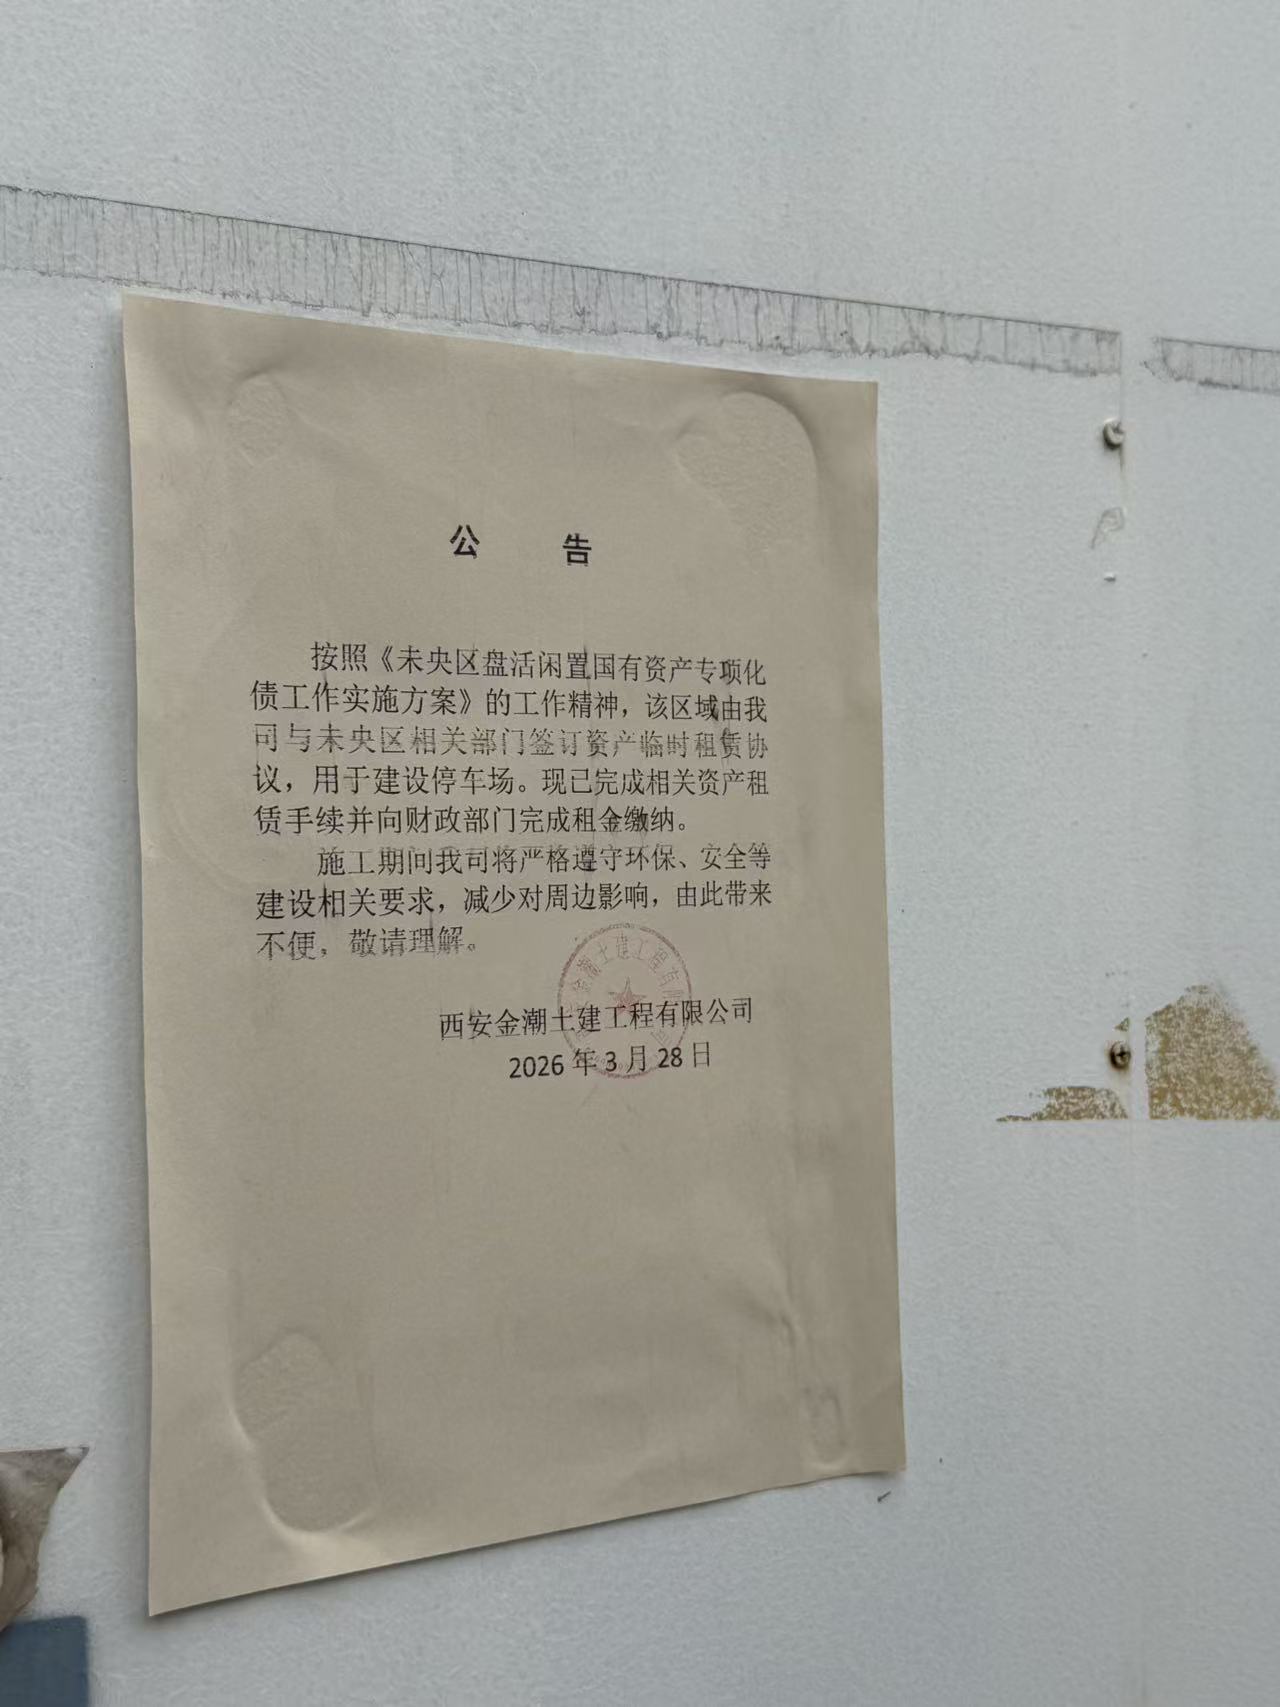 公 告
按照《未央区盘活闲置国有资产专项化
债工作实施方案》的工作精神，该区域由我
司与未央区相关部门签订资产临时租赁协
议，用于建设停车场。现已完成相关资产租
赁手续并向财政部门完成租金缴纳。
施工期间我司将严格遵守环保、安全等
建设相关要求，减少对周边影响，由此带来
不便，敬请理解。
西安金潮土建工程有限公司
2026年3月28日